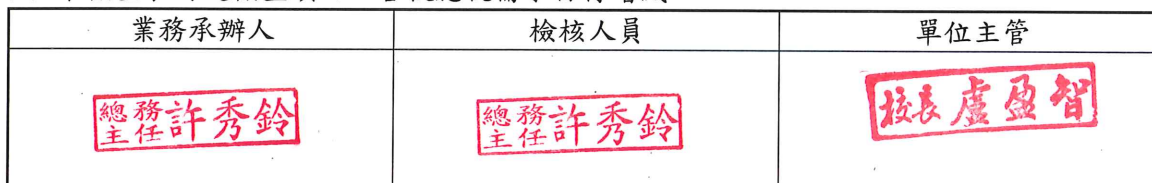 業務承辦人 檢核人員 單位主管
總務主任 許秀鈴 總務主任 許秀鈴 校長 盧盈智